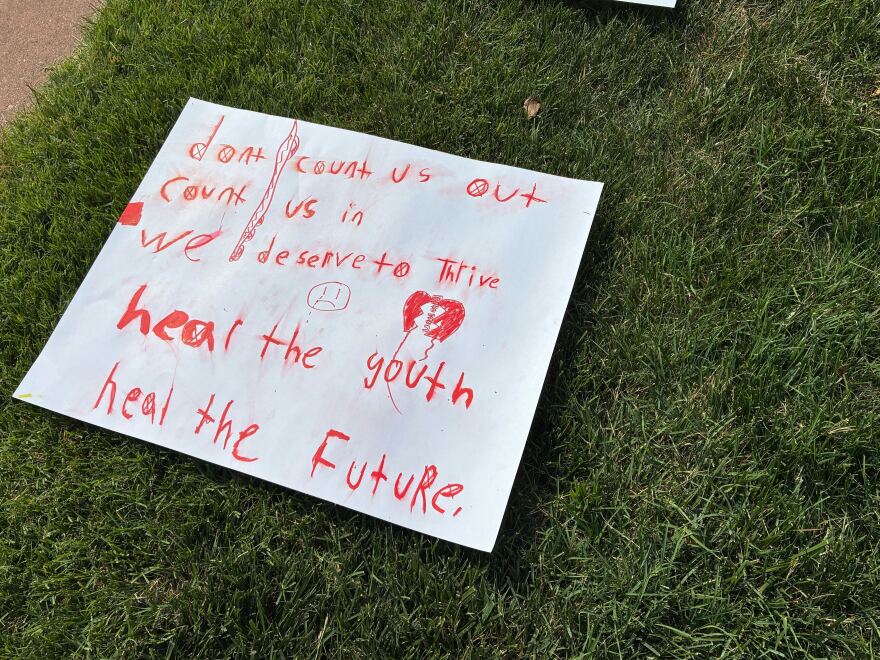 dont count us out
count us in
we deserve to Thrive
hear the youth
heal the FutuRe.